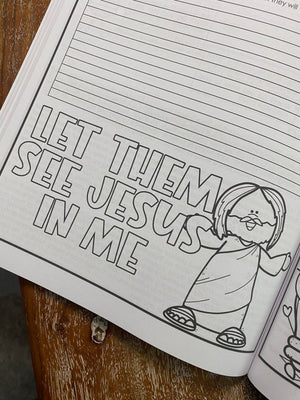 they will
LET THEM
SEE JESUS
IN ME